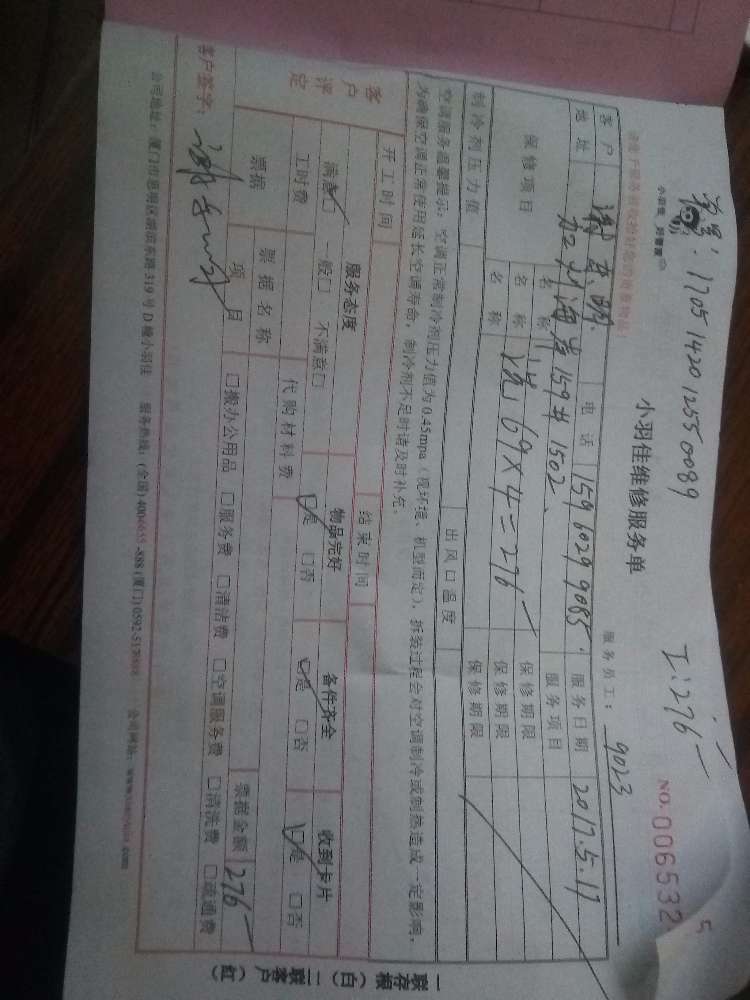 170514201255 0089
I:276-
小羽佳维修服务单
NO.0065324
5
服务员工: 9023
客户 电话 159 6029 9085. 服务日期 2017.5.17
地址 159# 1502 服务项目
保修项目 名称 洗 69×4=276- 保修期限
名称 保修期限
名称 保修期限
制冷剂压力值 出风口温度
空调服务温馨提示: 空调正常制冷剂压力值为 0.45mpa (视环境、机型而定), 拆装过程会对空调制冷或制热造成一定影响,
为确保空调正常使用延长空调寿命, 制冷剂不足时请及时补充。
开工时间 结束时间
客户评定 服务态度 物品完好 备件齐全 收到卡片
满意□ 一般□ 不满意□ □是 □否 □是 □否 □是 □否
工时费 代购材料费
票据 票据名称 票据金额 276-
项目 □搬办公用品 □服务费 □清洁费 □空调服务费 □清洗费 □疏通费
客户签字:
公司地址: 厦门市思明区湖滨东路 319 号 D 幢小羽佳 服务热线: (全国) 4006655-888 (厦门) 0592-5179888 公司网址:
一联存根(白) 二联客户(红)